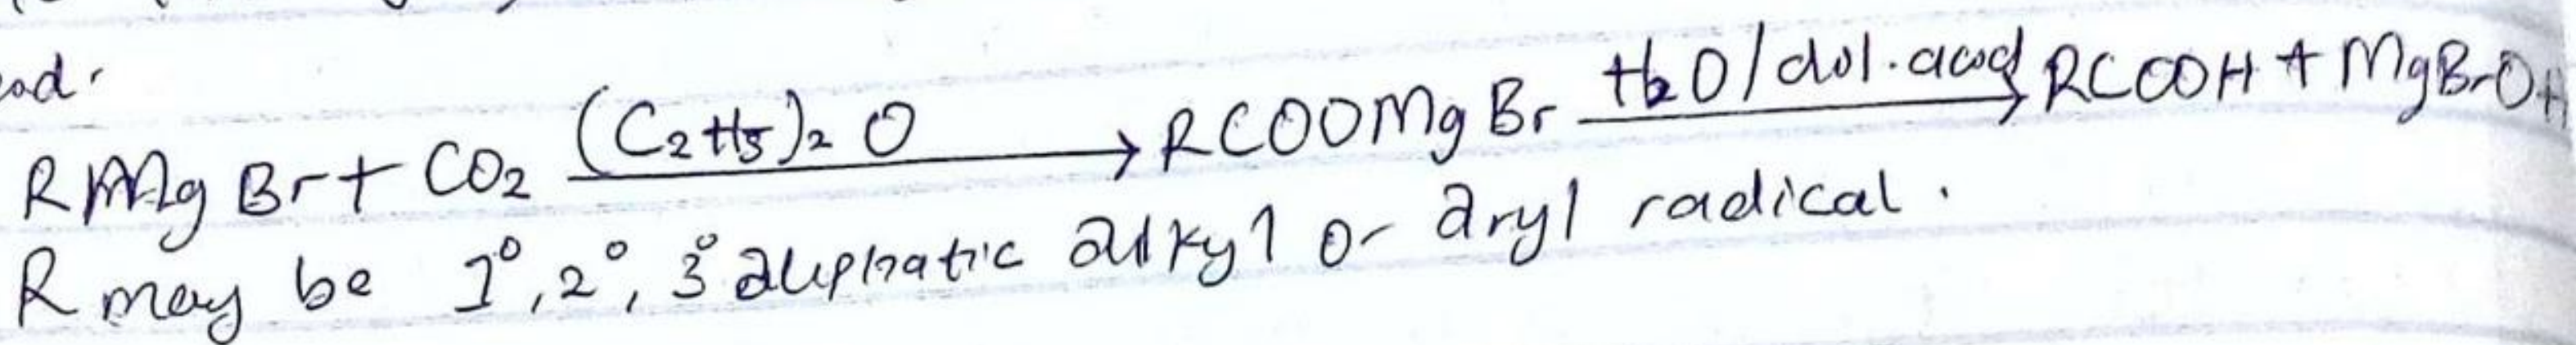 RMgBr + CO₂ (C₂H₅)₂O → RCOOMgBr H₂O/dil. acid → RCOOH + MgBrOH
R may be 1°, 2°, 3° aliphatic alkyl or aryl radical.